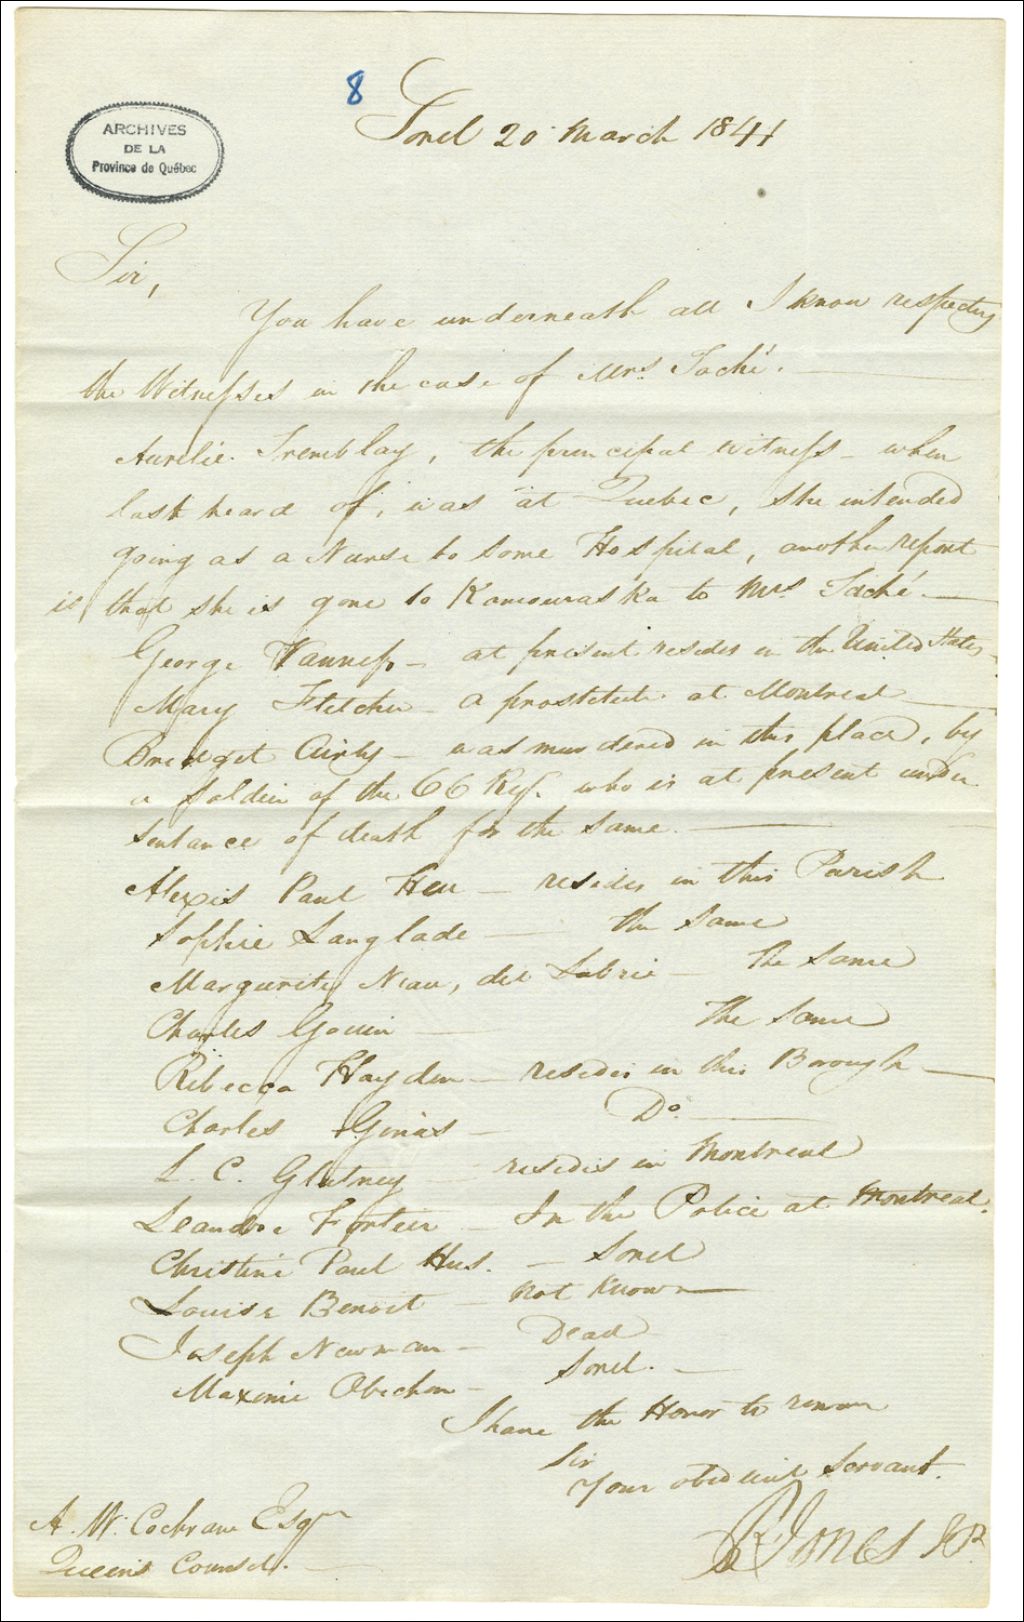 8
Sorel 20 March 1841
ARCHIVES
DE LA
Province de Québec
Sir,
You have underneath all I know respecting
the Witnesses in the case of Mrs. Taché.
Aurélie Tremblay, the principal witness - when
last heard of, was at Quebec, she intended
going as a Nurse to some Hospital, another report
is that she is gone to Kamouraska to Mrs. Taché. -
George Vanness - at present resides in the United States -
Mary Fletcher - a prostitute at Montreal -
Bridget - was murdered in this place, by
a Soldier of the 66 Reg. who is at present under
sentance of death for the same. -
Alexis Paul Heu - resides in this Parish
Sophie Langlade - the same
Marguerite Neau, dit - The same
Charles Gouin - The same
Ribecca Hayden - resides in this Borough -
Charles - Do. -
L. C. - resides in Montreal
Leandre Fortier - In the Police at Montreal.
Christine Paul Hus. - Sorel
Louise Benoit - not known -
Joseph Newman - Dead
Maxime Obichon - Sorel. -
I have the Honor to remain
Sir
Your obedient Servant.
R Jones JP.
A. W. Cochran Esqr
Queens Counsel. -